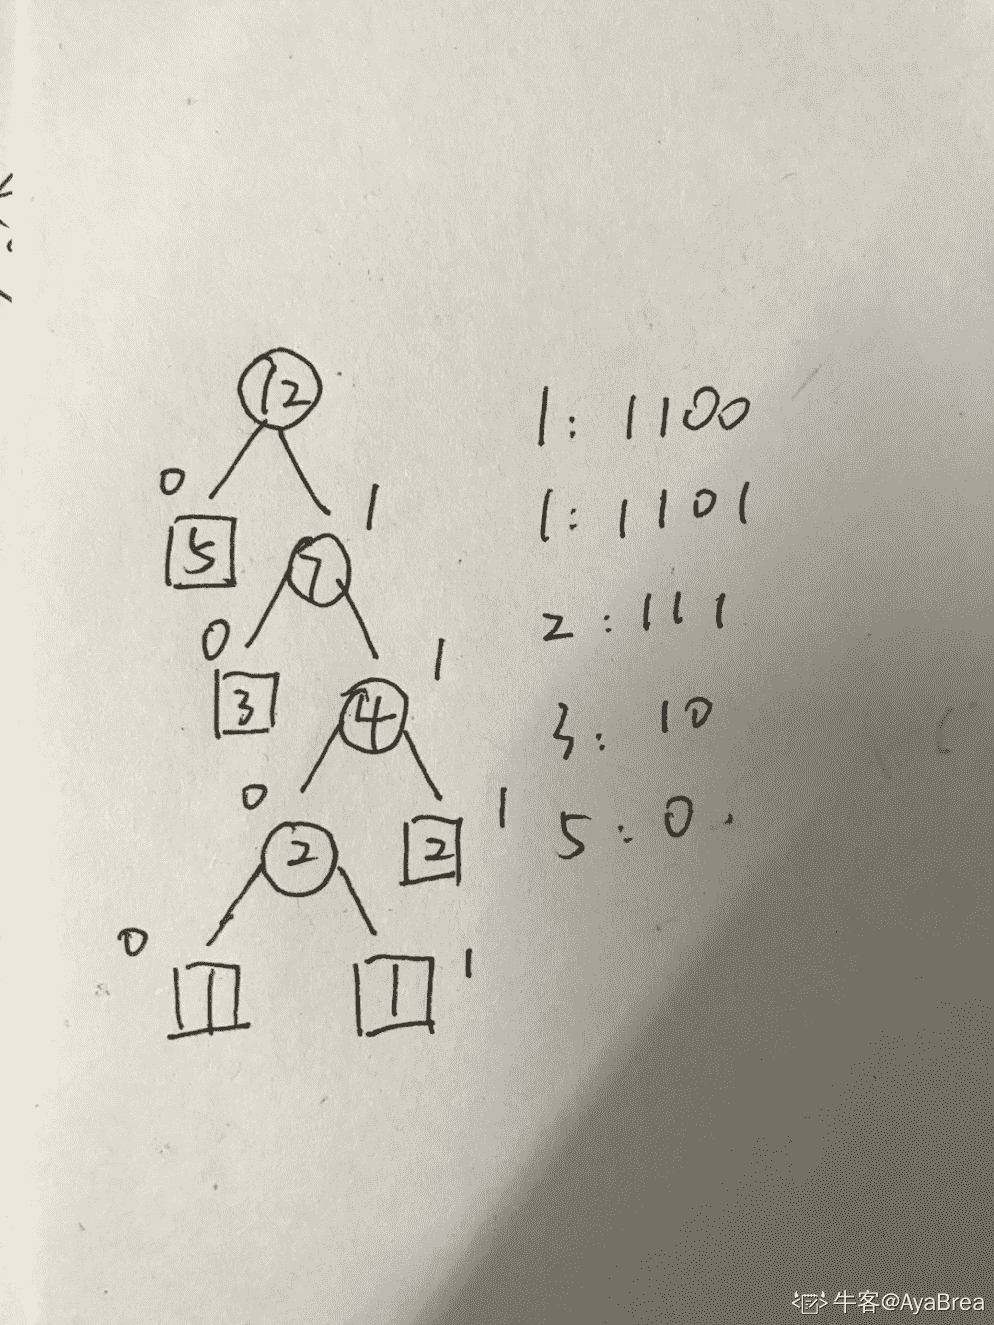 12
0
1
5
7
0
1
3
4
0
1
2
2
0
1
1
1
1: 1100
1: 1101
2: 111
3: 10
5: 0.
牛客@AyaBrea